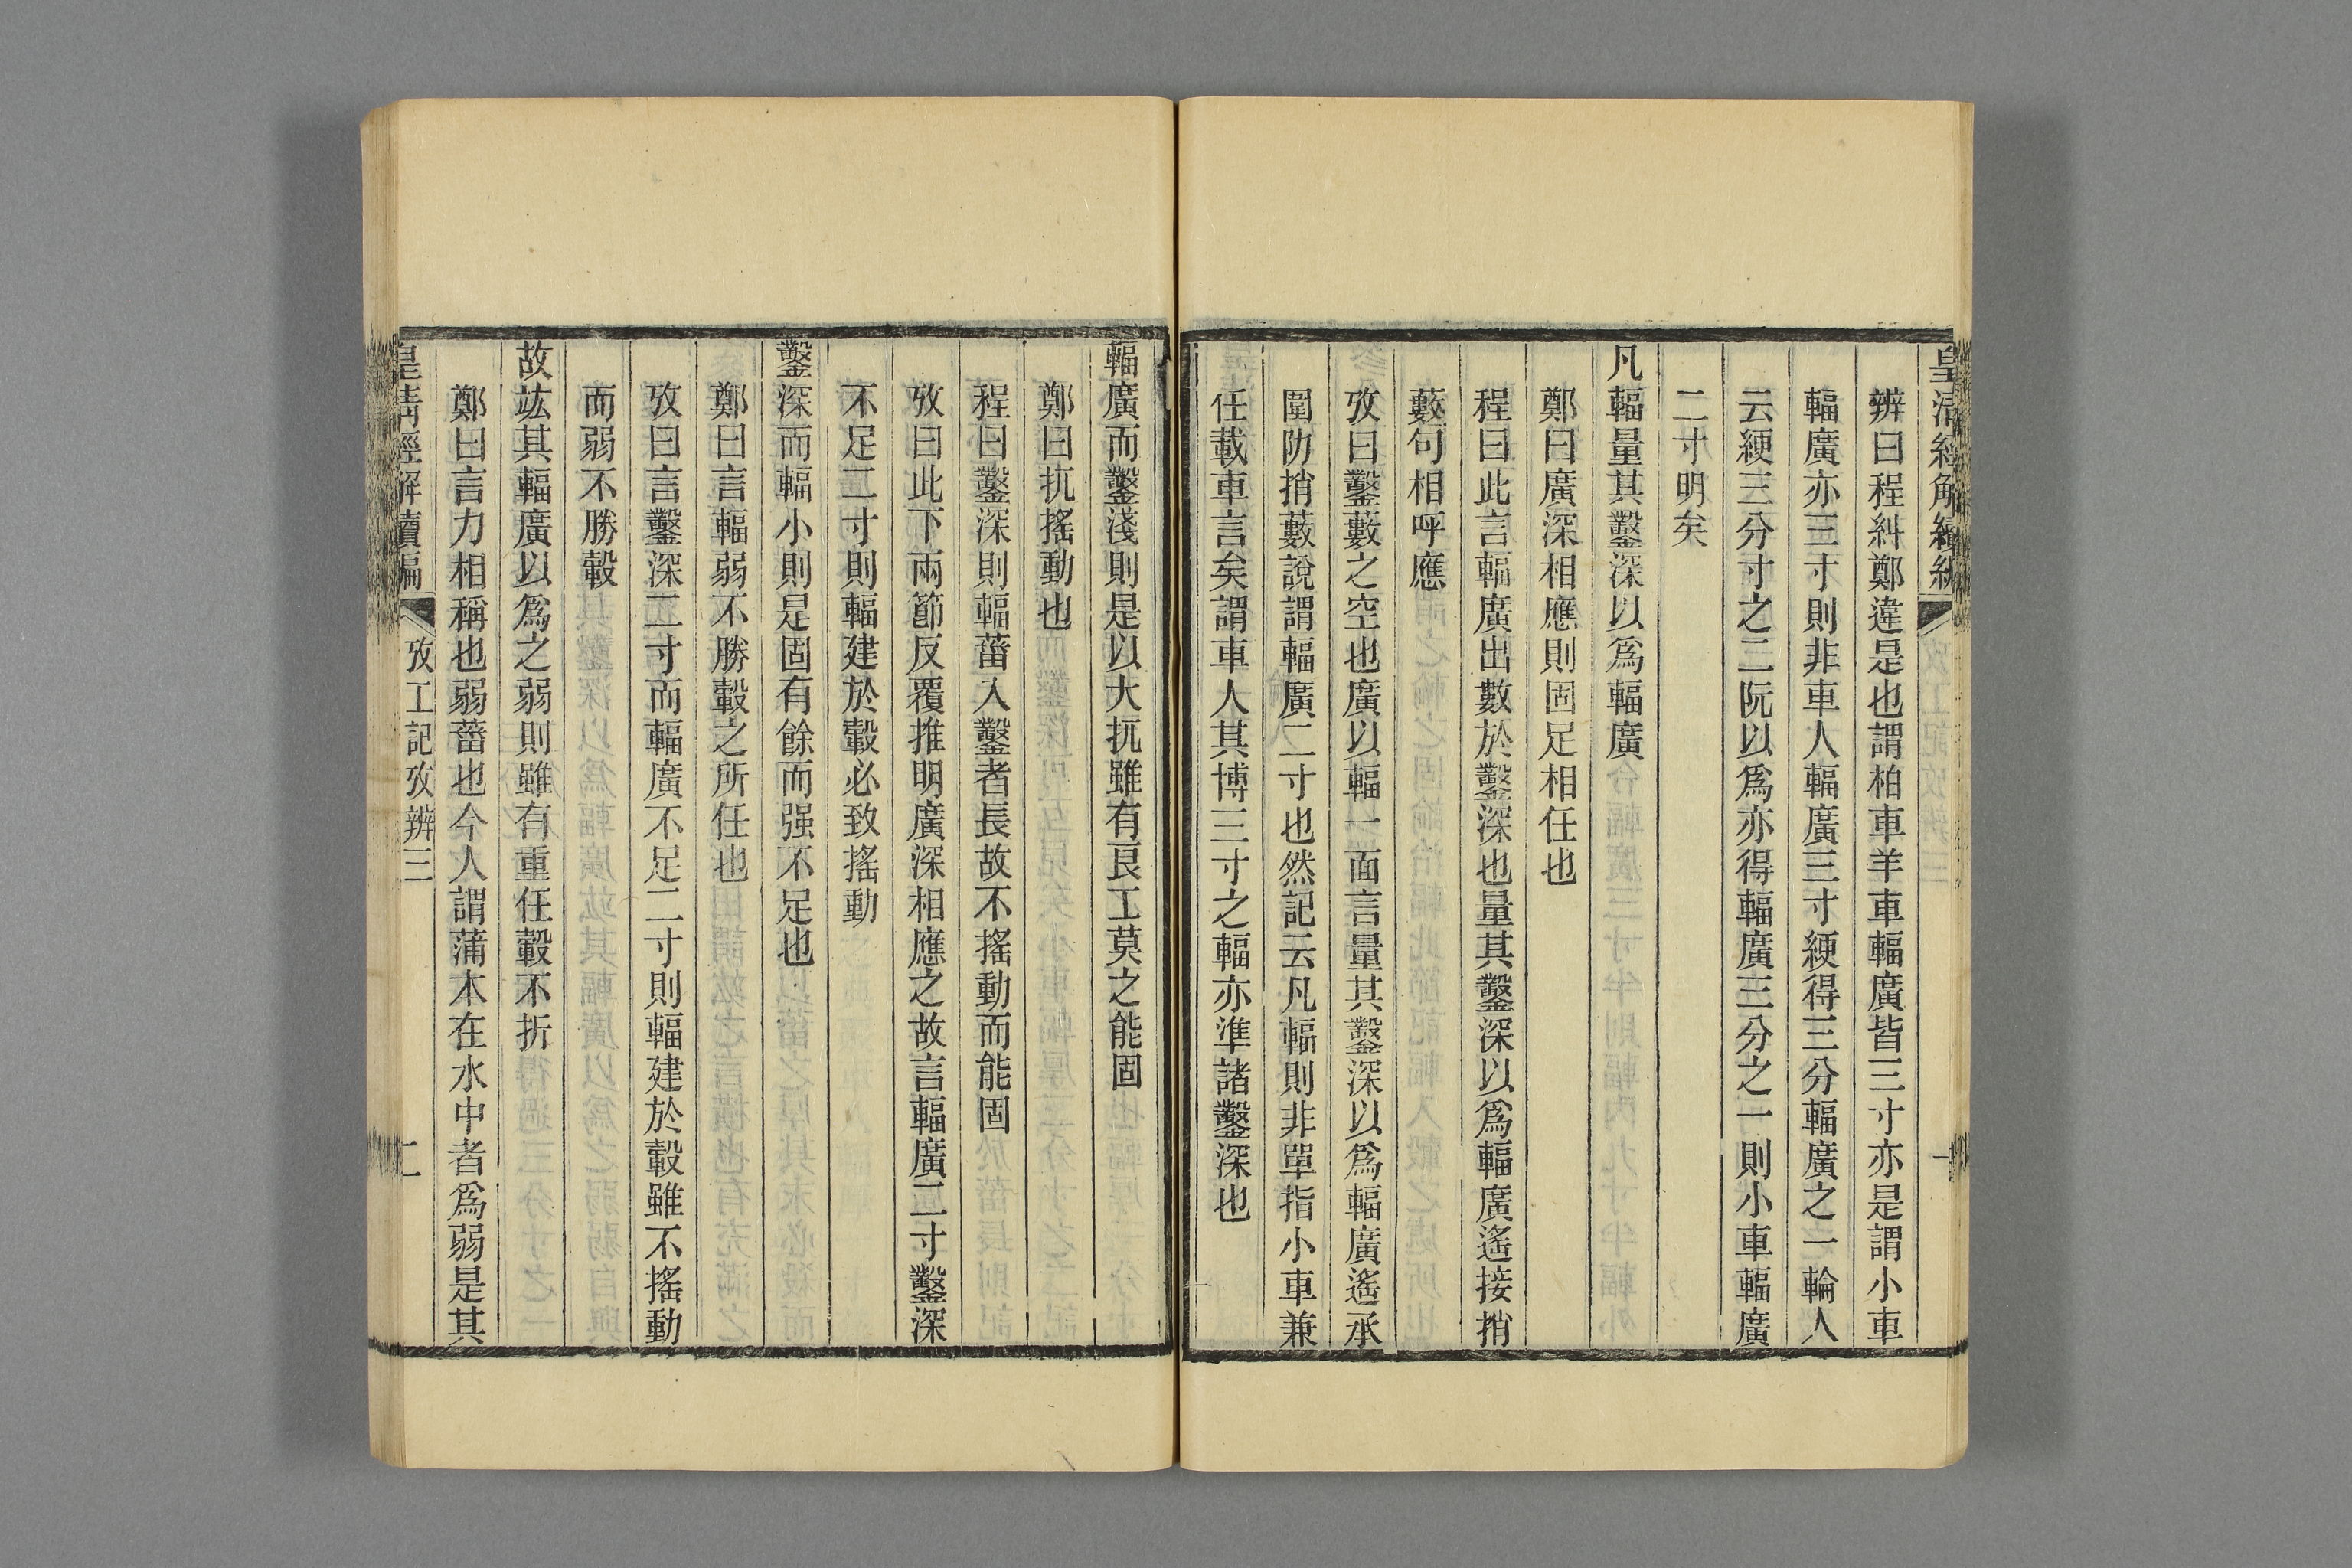 皇清經解續編
辨曰程糾鄭違是也謂柏車羊車輻廣皆三寸亦是謂小車
輻廣亦三寸則非車人輻廣三寸綆得三分輻廣之一輪人
云綆三分寸之二阮以爲亦得輻廣三分之一則小車輻廣
二寸明矣
凡輻量其鑿深以爲輻廣
鄭曰廣深相應則固足相任也
程曰此言輻廣出數於鑿深也量其鑿深以爲輻廣遙接捎
藪句相呼應
攷曰鑿藪之空也廣以輻一面言量其鑿深以爲輻廣遙承
圍阞捎藪說謂輻廣二寸也然記云凡輻則非單指小車兼
任載車言矣謂車人其博三寸之輻亦準諸鑿深也
輻廣而鑿淺則是以大扤雖有良工莫之能固
鄭曰扤搖動也
程曰鑿深則輻菑入鑿者長故不搖動而能固
攷曰此下兩節反覆推明廣深相應之故言輻廣二寸鑿深
不足二寸則輻建於轂必致搖動
鑿深而輻小則是固有餘而强不足也
鄭曰言輻弱不勝轂之所任也
攷曰言鑿深二寸而輻廣不足二寸則輻建於轂雖不搖動
而弱不勝轂
故竑其輻廣以爲之弱則雖有重任轂不折
鄭曰言力相稱也弱菑也今人謂蒲本在水中者爲弱是其
皇清經解續編 攷工記攷辨三 二